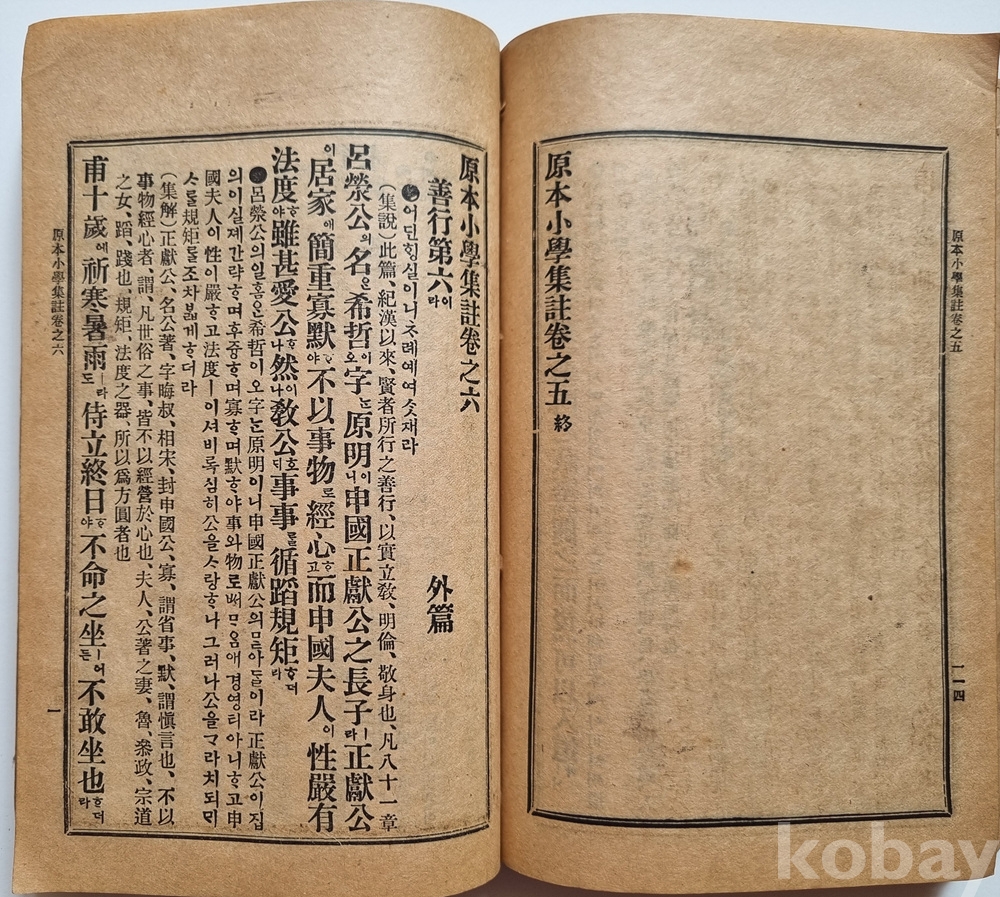 原本小學集註卷之五
一一四
原本小學集註卷之五 終
原本小學集註卷之六
善行第六이라 外篇
●어딘ᄒᆡᆼ실이니ᄎᆞ례예여ᄉᆞᆺ재라
(集說)此篇、紀漢以來、賢者所行之善行、以實立敎、明倫、敬身也、凡八十一章
呂滎公의名은希哲이오字ᄂᆞᆫ原明이니申國正獻公之長子ㅣ라正獻公
이居家애簡重寡默ᄒᆞ야不以事物로經心ᄒᆞ고而申國夫人이性嚴有
法度ᄒᆞ야雖甚愛公ᄒᆞ나然이나敎公호ᄃᆡ事事를循蹈規矩ᄒᆞ더라
●呂滎公의일홈은希哲이오字ᄂᆞᆫ原明이니申國正獻公의ᄆᆞᆯ아ᄃᆞᆯ이라正獻公이집
의이실제간략ᄒᆞ며후즁ᄒᆞ며寡ᄒᆞ며默ᄒᆞ야事와物로ᄡᅥᄆᆞᄋᆞᆷ애경영티아니ᄒᆞ고申
國夫人이性이嚴ᄒᆞ고法度ㅣ이셔비록심히公을ᄉᆞ랑ᄒᆞ나그러나公을ᄀᆞᄅᆞ치되ᄆᆡ
ᄉᆞ를規矩를조차ᄇᆞᆲ게ᄒᆞ더라
(集解)正獻公、名公著、字晦叔、相宋、封申國公、寡、謂省事、默、謂愼言也、不以
事物經心者、謂、凡世俗之事、皆不以經營於心也、夫人、公著之妻、魯、叅政、宗道
之女、蹈、踐也、規矩、法度之器、所以爲方圓者也
甫十歲에祈寒暑雨ㅣ라도侍立終日ᄒᆞ야不命之坐ㅣ어든不敢坐也ᄒᆞ더라
原本小學集註卷之六
一
kobay